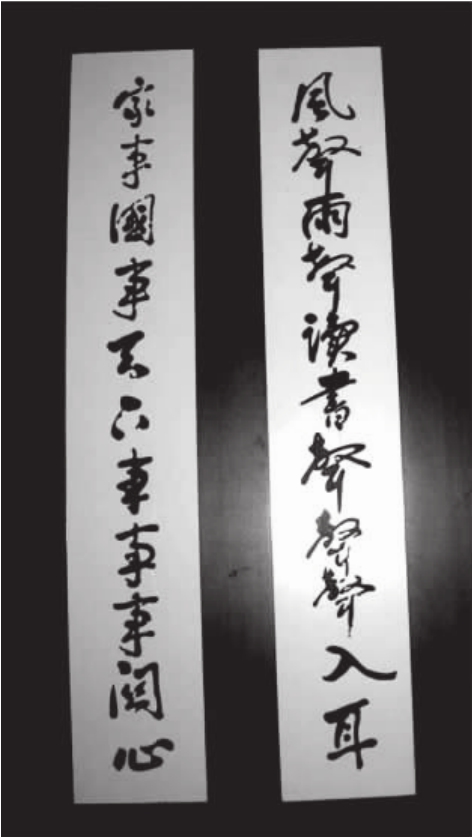 風聲雨聲讀書聲聲聲入耳
家事國事天下事事事關心